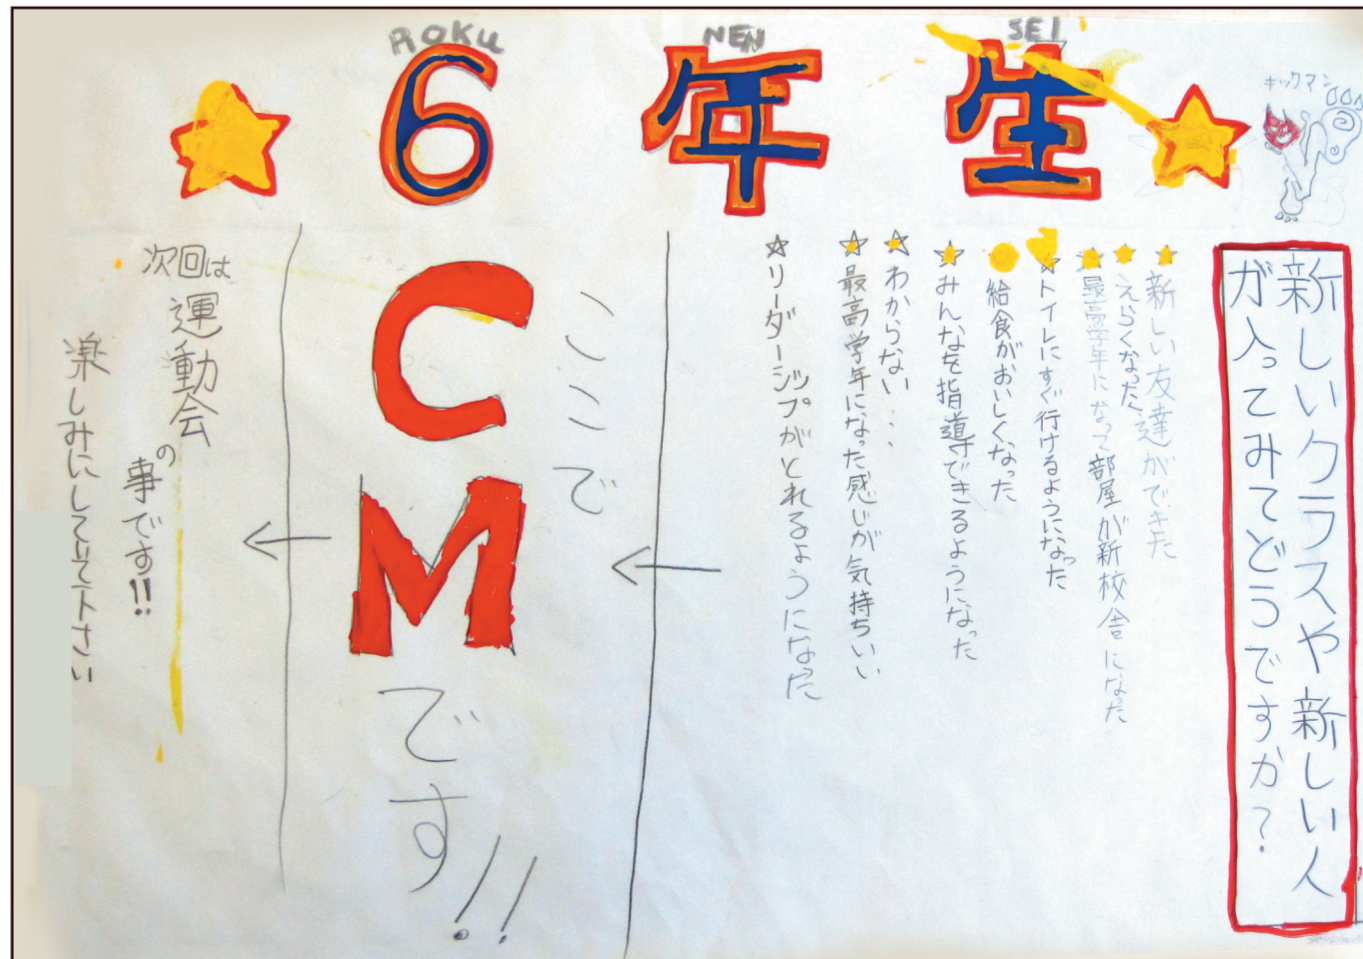 ROKU NEN SEI
6年生
キックマン
新しいクラスや新しい人
が入ってみてどうですか?
☆新しい友達ができた
☆えらくなった
☆最高学年になって部屋が新校舎になった
☆トイレにすぐ行けるようになった
給食がおいしくなった
☆みんなを指導できるようになった
☆わからない...
☆最高学年になった感じが気持ちいい
☆リーダーシップがとれるようになった
ここで
CMです!!
次回は運動会
の事です!!
楽しみにして下さい